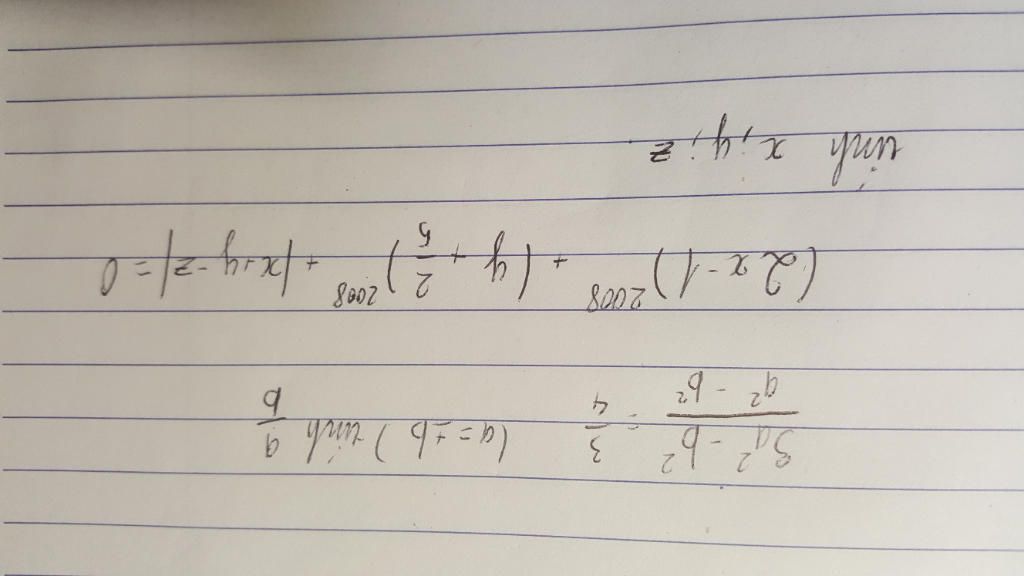 (3a² - b²)/(a² - b²) = 3/4 (a = ±b) tính a/b
(2x - 1)²⁰⁰⁸ + (y + 2/5)²⁰⁰⁸ + |x+y-z| = 0
tính x; y; z.